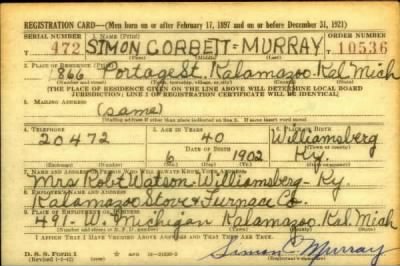 REGISTRATION CARD—(Men born on or after February 17, 1897 and on or before December 31, 1921)
SERIAL NUMBER 1. NAME (Print) ORDER NUMBER
472 SIMON CORBETT=MURRAY 10536
(First) (Middle) (Last)
2. PLACE OF RESIDENCE (Print)
866 Portage St. Kalamazoo Kal Mich
(Number and street) (Town, township, village, or city) (County) (State)
[THE PLACE OF RESIDENCE GIVEN ON THE LINE ABOVE WILL DETERMINE LOCAL BOARD
JURISDICTION; LINE 2 OF REGISTRATION CERTIFICATE WILL BE IDENTICAL]
3. MAILING ADDRESS
(same)
[Mailing address if other than place indicated on line 2. If same insert word same]
4. TELEPHONE 5. AGE IN YEARS 6. PLACE OF BIRTH
20472 40 Williamsberg
DATE OF BIRTH (Town or county)
6 1902 Ky.
(Exchange) (Number) (Mo.) (Day) (Yr.) (State or country)
7. NAME AND ADDRESS OF PERSON WHO WILL ALWAYS KNOW YOUR ADDRESS
Mrs Robt Watson Williamsberg- Ky.
8. EMPLOYER'S NAME AND ADDRESS
Kalamazoo Stove & Furnace Co.
9. PLACE OF EMPLOYMENT OR BUSINESS
491- W. Michigan Kalamazoo. Kal Mich
(Number and street or R. F. D. number) (Town) (County) (State)
I AFFIRM THAT I HAVE VERIFIED ABOVE ANSWERS AND THAT THEY ARE TRUE.
D. S. S. Form 1
(Revised 1-1-42) GPO Simon C Murray